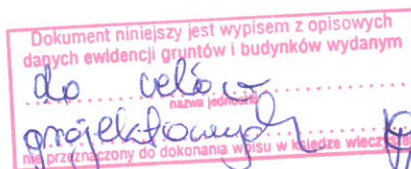 Dokument niniejszy jest wypisem z opisowych
danych ewidencji gruntów i budynków wydanym
do celów
nazwa jednostki
projektowych
nie przeznaczony do dokonania wpisu w księdze wieczystej